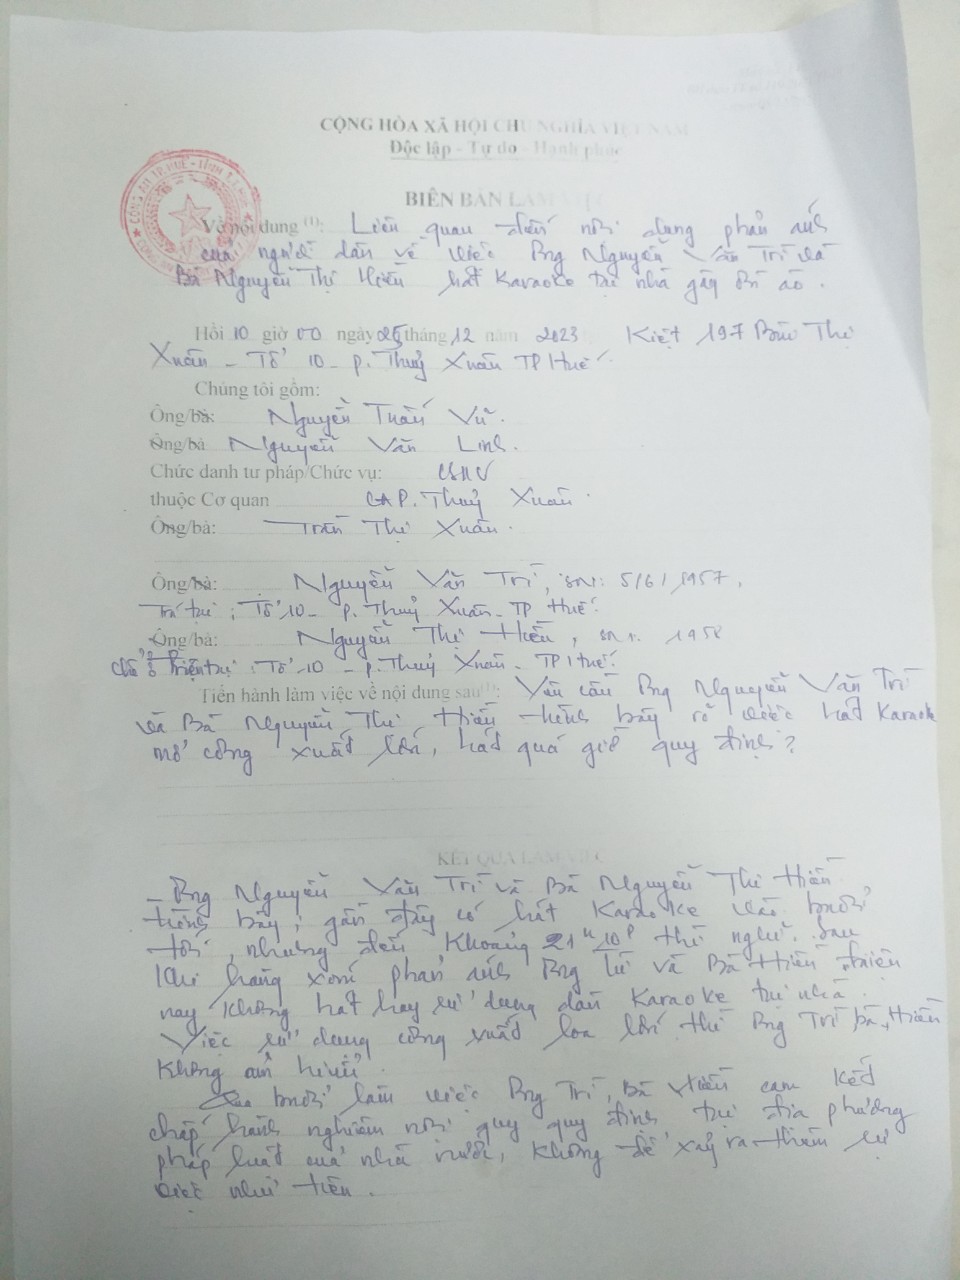 CỘNG HÒA XÃ HỘI CHỦ NGHĨA VIỆT NAM
Độc lập - Tự do - Hạnh phúc
BIÊN BẢN LÀM VIỆC
Về nội dung (1): Liên quan đến nội dung phản ánh
của người dân về việc Ông Nguyễn Văn Trí và
Bà Nguyễn Thị Hiền hát Karaoke tại nhà gây ồn ào.
Hồi 10 giờ 00 ngày 25 tháng 12 năm 2023 Kiệt 197 Bùi Thị
Xuân - Tổ 10 - P. Thuỷ Xuân TP Huế.
Chúng tôi gồm:
Ông/bà: Nguyễn Tuấn Vũ.
Ông/bà Nguyễn Văn Linh.
Chức danh tư pháp/Chức vụ: CSKV
thuộc Cơ quan CAP. Thuỷ Xuân.
Ông/bà: Trần Thị Xuân.
Ông/bà: Nguyễn Văn Trí, SN: 5/6/1957.
Trú tại: Tổ 10 - P. Thuỷ Xuân - TP Huế.
Ông/bà: Nguyễn Thị Hiền, SN: 1958
Chỗ ở hiện tại: Tổ 10 - P. Thuỷ Xuân - TP Huế.
Tiến hành làm việc về nội dung sau: Yêu cầu Ông Nguyễn Văn Trí
và Bà Nguyễn Thị Hiền trình bày rõ việc hát Karaoke
mở công xuất lớn, hát quá giờ quy định?
KẾT QUẢ LÀM VIỆC
- Ông Nguyễn Văn Trí và Bà Nguyễn Thị Hiền
trình bày: gần đây có hát Karaoke vào buổi
tối, nhưng đến khoảng 21h10p thì nghỉ. Sau
khi hàng xóm phản ánh Ông Trí và Bà Hiền, hiện
nay không hát hay sử dụng dàn Karaoke tại nhà.
Việc sử dụng công xuất loa lớn thì Ông Trí, bà Hiền
không am hiểu.
Qua buổi làm việc Ông Trí, Bà Hiền cam kết
chấp hành nghiêm nội quy quy định tại địa phương
pháp luật của nhà nước, không để xảy ra thêm sự
việc như trên.